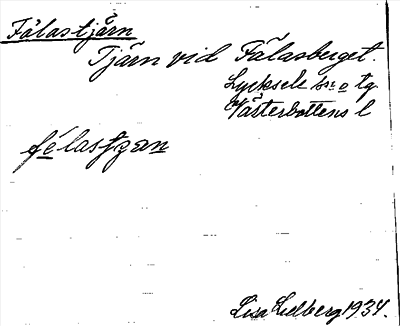 Fälastjärn
Tjärn vid Fälasberget.
Lycksele sn o tg
Västerbottens l
félastzan
Lisa Lidberg 1934.